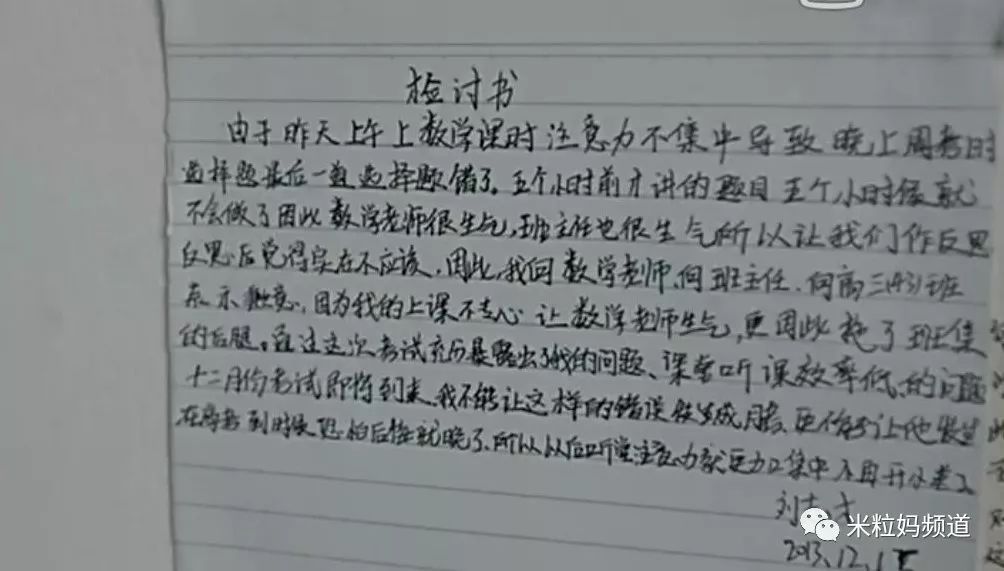 检讨书
由于昨天上午上数学课时注意力不集中导致晚上周考时
选择题最后一道选择题错了。五个小时前才讲的题目五个小时候就
不会做了因此数学老师很生气,班主任也很生气所以让我们作反思
反思后觉得实在不应该,因此,我向数学老师、向班主任、向高三(43)班
表示歉意,因为我的上课不专心让数学老师生气,更因此拖了班集
的后腿。通过这次考试充分暴露出了我的问题、课堂听课效率低的问题
十二月份考试即将到来、我不能让这样的错误 更不能让他发生
在高考到时候恐怕后悔就晚了、所以以后听课注意力就更加集中不再开小差了
刘
2013.12.1
米粒妈频道